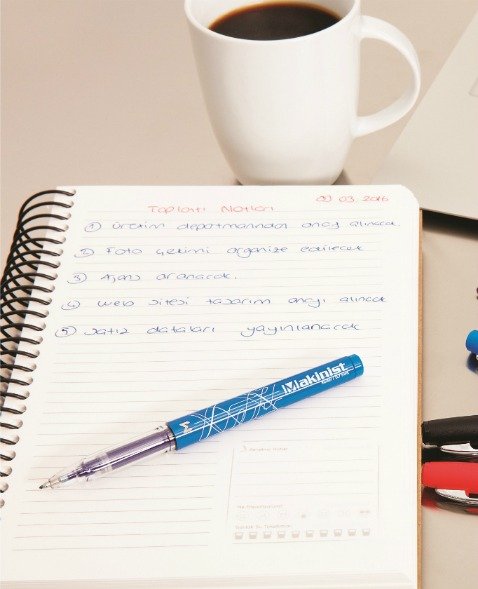 Toplantı Notları 08.03.2016
① Üretim departmanından onay alınacak
② Foto çekimi organize edilecek
③ Ajans aranacak.
④ Web sitesi tasarım onayı alınacak
⑤ Satış dataları yayınlanacak
Makinist